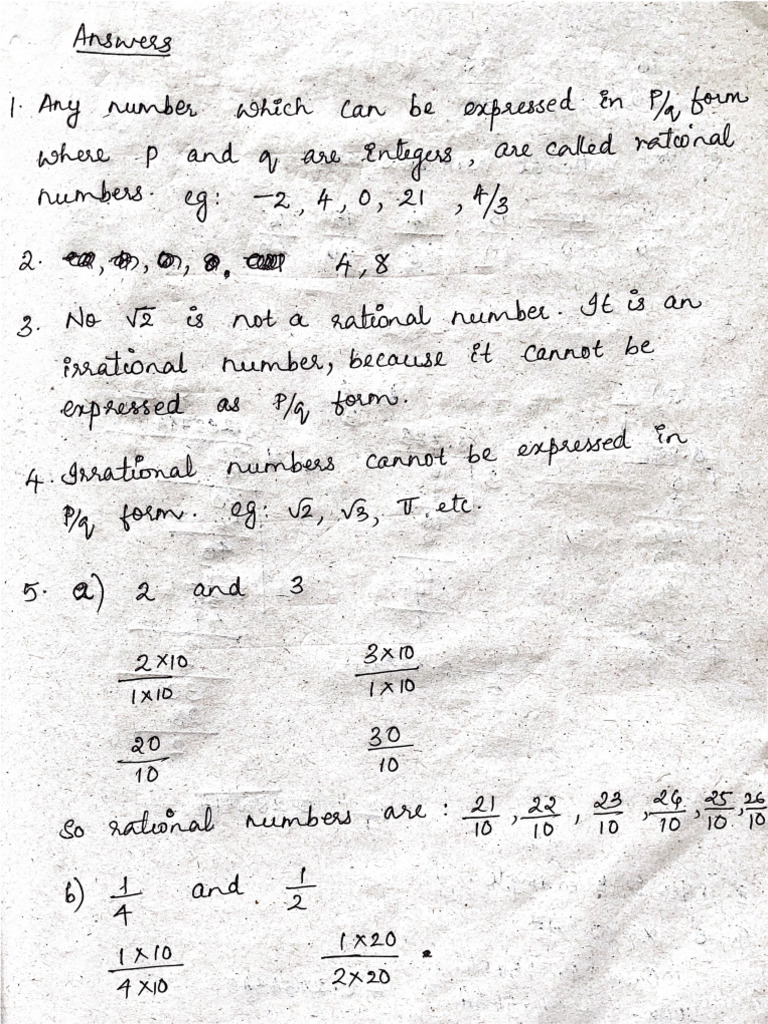 Answers
1. Any number which can be expressed in P/q form
where p and q are integers, are called rational
numbers. eg: -2, 4, 0, 21, 4/3
2. 4, 8
3. No √2 is not a rational number. It is an
irrational number, because it cannot be
expressed as P/q form.
4. Irrational numbers cannot be expressed in
P/q form. eg: √2, √3, π, etc.
5. a) 2 and 3
2×10/1×10 3×10/1×10
20/10 30/10
So rational numbers are: 21/10, 22/10, 23/10, 24/10, 25/10, 26/10
b) 1/4 and 1/2
1×10/4×10 1×20/2×20